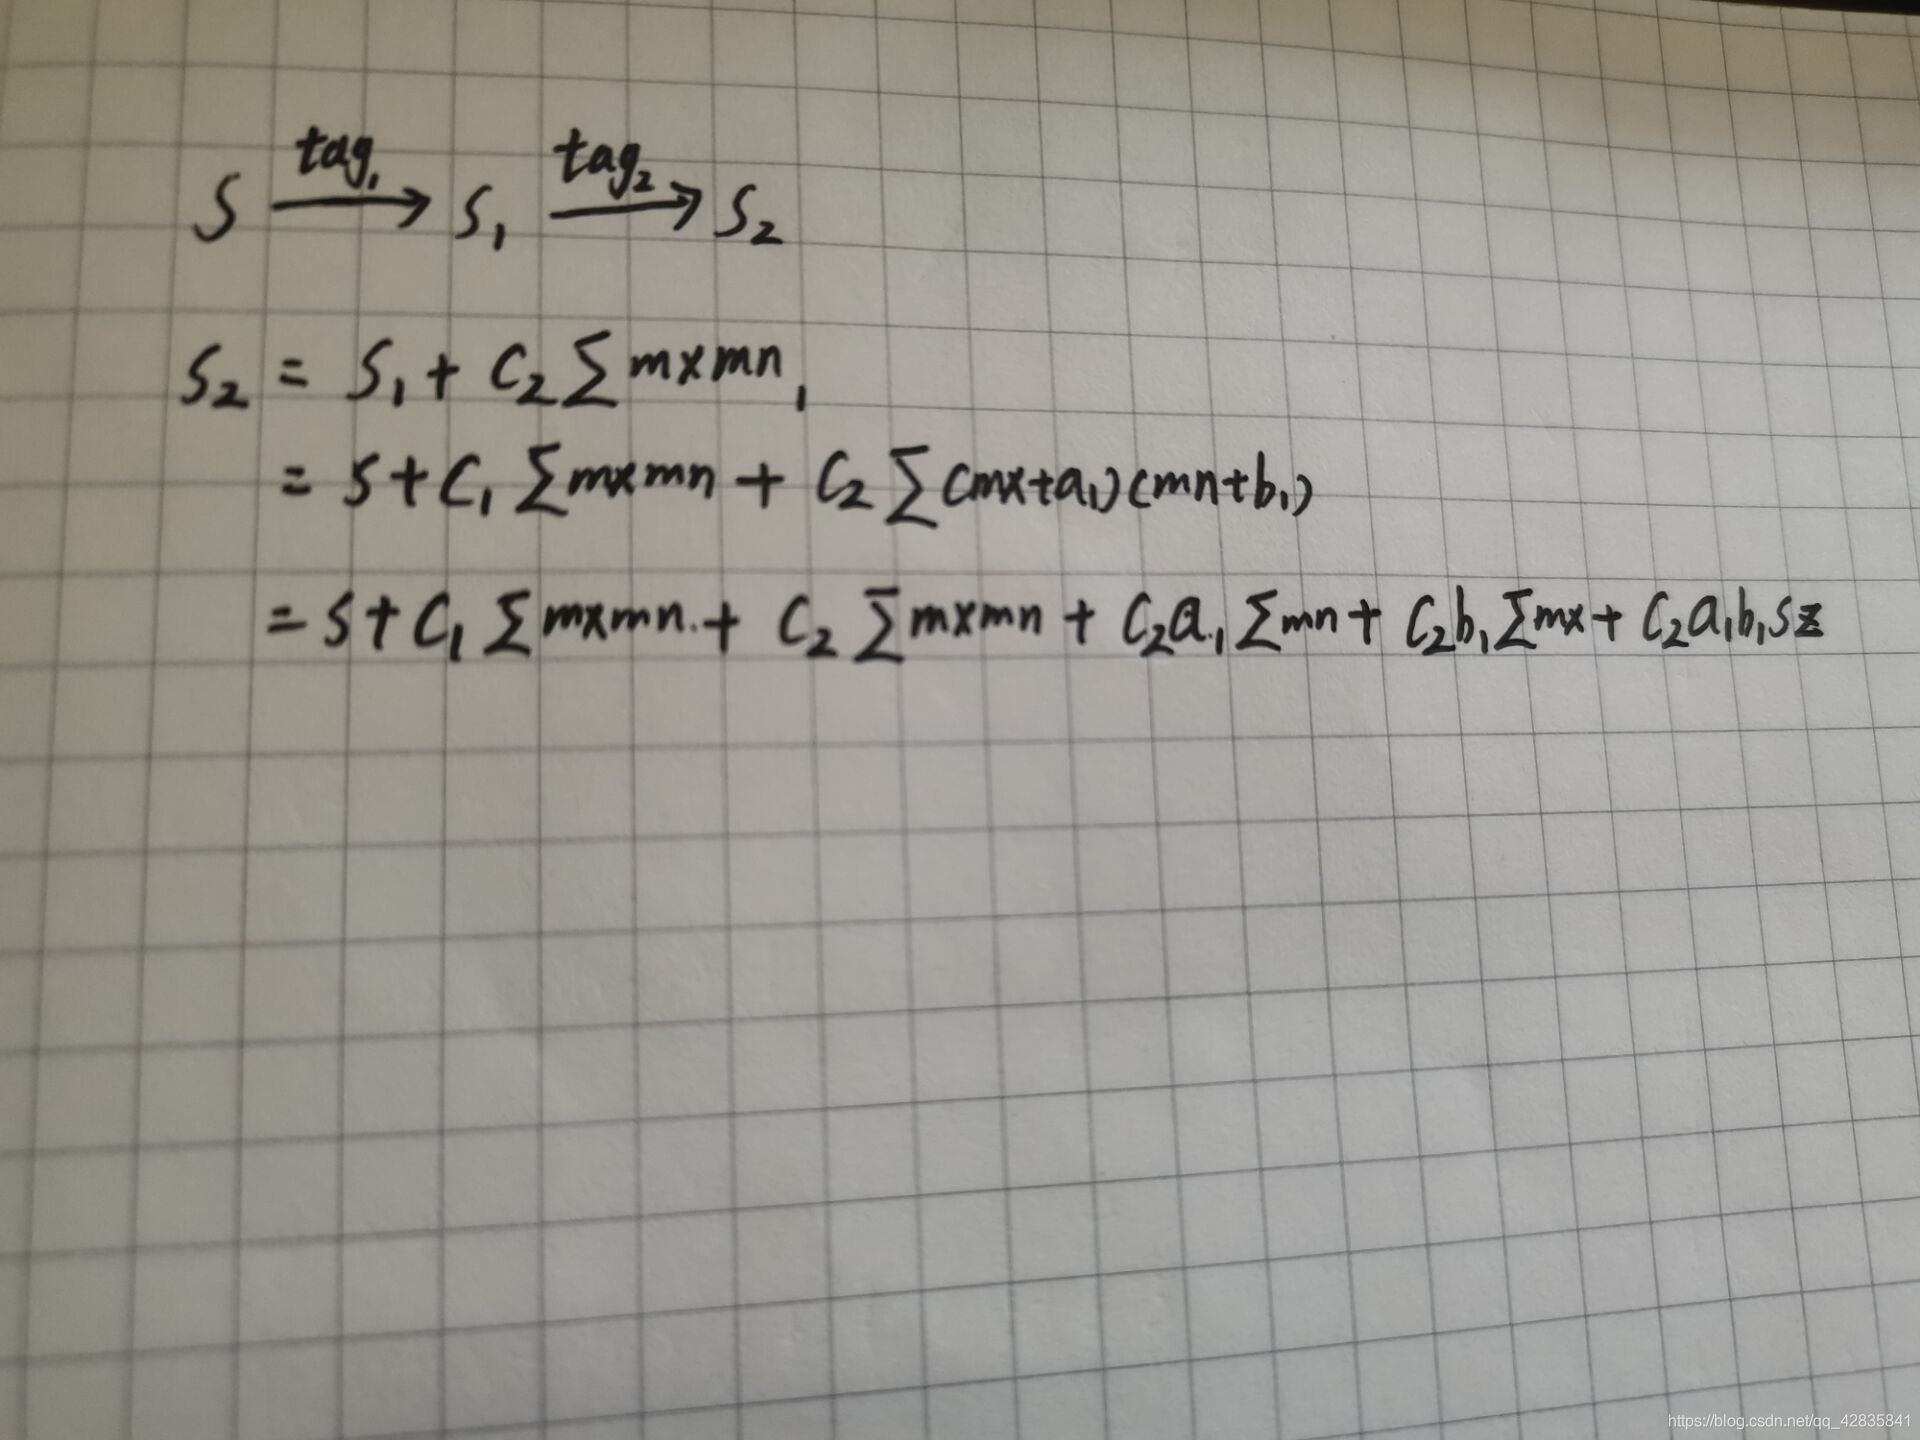 S \xrightarrow{tag_1} S_1 \xrightarrow{tag_2} S_2
S_2 = S_1 + C_2 Σ mx mn_1
= S + C_1 Σ mx mn + C_2 Σ (mx + a_1)(mn + b_1)
= S + C_1 Σ mx mn + C_2 Σ mx mn + C_2 a_1 Σ mn + C_2 b_1 Σ mx + C_2 a_1 b_1 sz
https://blog.csdn.net/qq_42835841